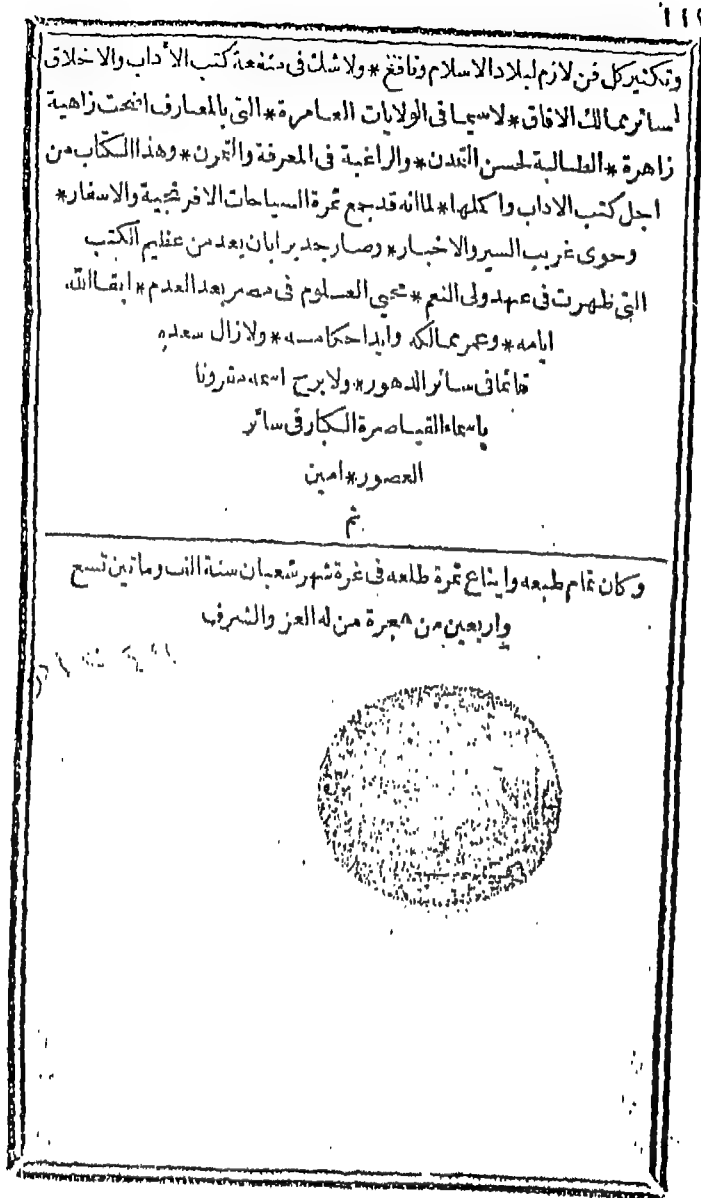 ١١٢
وتكثير كل فن لازم لبلاد الاسلام ونافع * ولا شك فى منفعة كتب الأداب والاخلاق
لسائر ممالك الافاق * لاسيما فى الولايات العامرة * التى بالمعارف اضحت زاهية
زاهرة * الطالبة لحسن التمدن * والراغبة فى المعرفة والتمرن * وهذا الكتاب من
اجل كتب الاداب واكملها * لما انه قد جمع ثمرة السياحات الافرنجية والاسفار *
وحوى غريب السير والاخبار * وصار جديرا بان يعد من عظيم الكتب
التى ظهرت فى عهد ولى النعم * محيى العلوم فى مصر بعد العدم * ابقا الله
ايامه * وعمر ممالكه وأيد احكامه * ولا زال سعده
قائما فى سائر الدهور * ولا برح اسمه مقرونا
باسماء القياصرة الكبار فى سائر
العصور * امين
تم
وكان تمام طبعه وايناع ثمرة طلعه فى غرة شهر شعبان سنة الف وماتين تسع
واربعين من هجرة من له العز والشرف